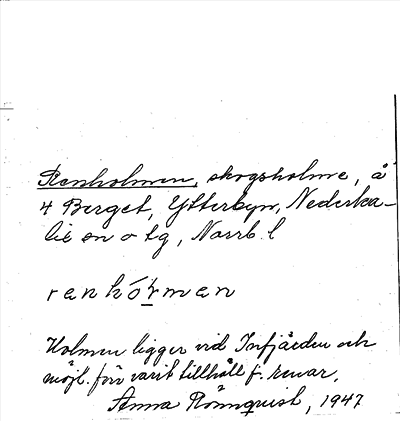 Renholmen, skogsholme, å
4 Berget, Ytterbyn, Nederka-
lix sn o tg, Norrb. l
renhó̱rmen
Holmen ligger vid Torfjärden och
möjl. förr varit tillhåll f. renar.
Anna Rönnquist, 1947